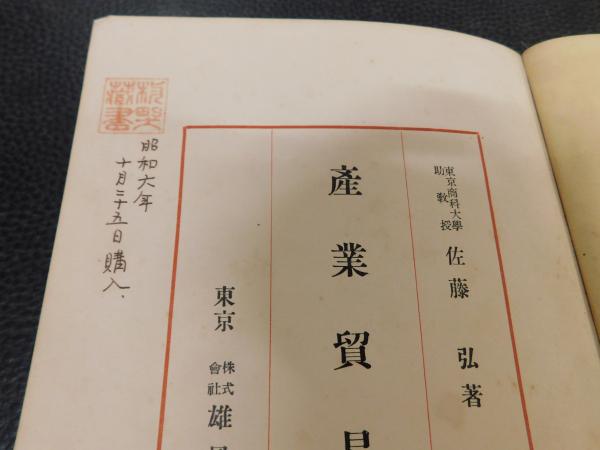 東京商科大學
助教授
佐藤弘著
產業貿
東京
株式
會社
雄
昭和六年
十月二十五日購入.
藏書